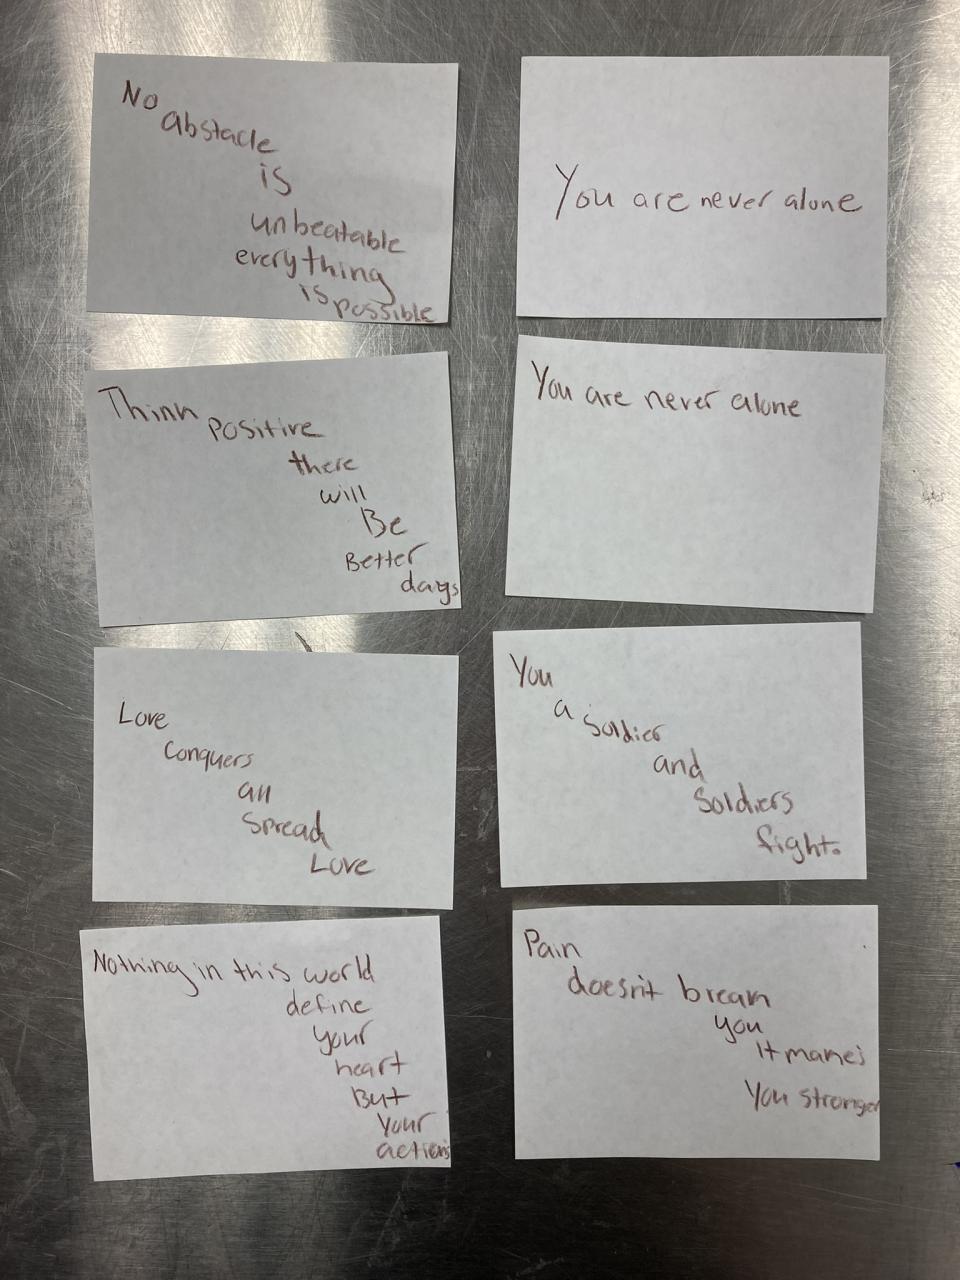 No
abstacle
is
unbeatable
everything
is possible
You are never alone
Think
positive
there
will
Be
Better
days
You are never alone
Love
Conquers
all
Spread
Love
You
a
Soldier
and
Soldiers
fight.
Nothing in this world
define
your
heart
But
your
actions
Pain
doesn't break
you
It makes
You stronger